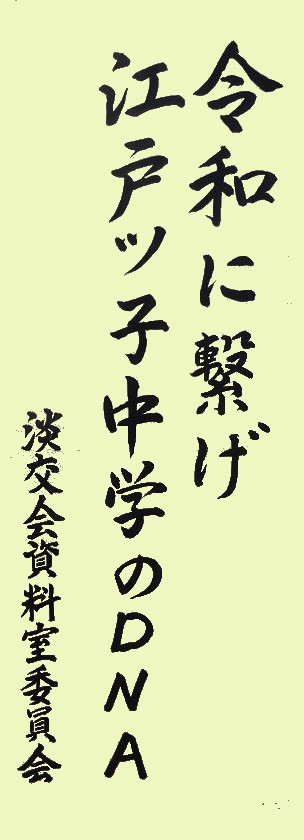 令和に繋げ
江戸ッ子中学のDNA
淡交会資料室委員会